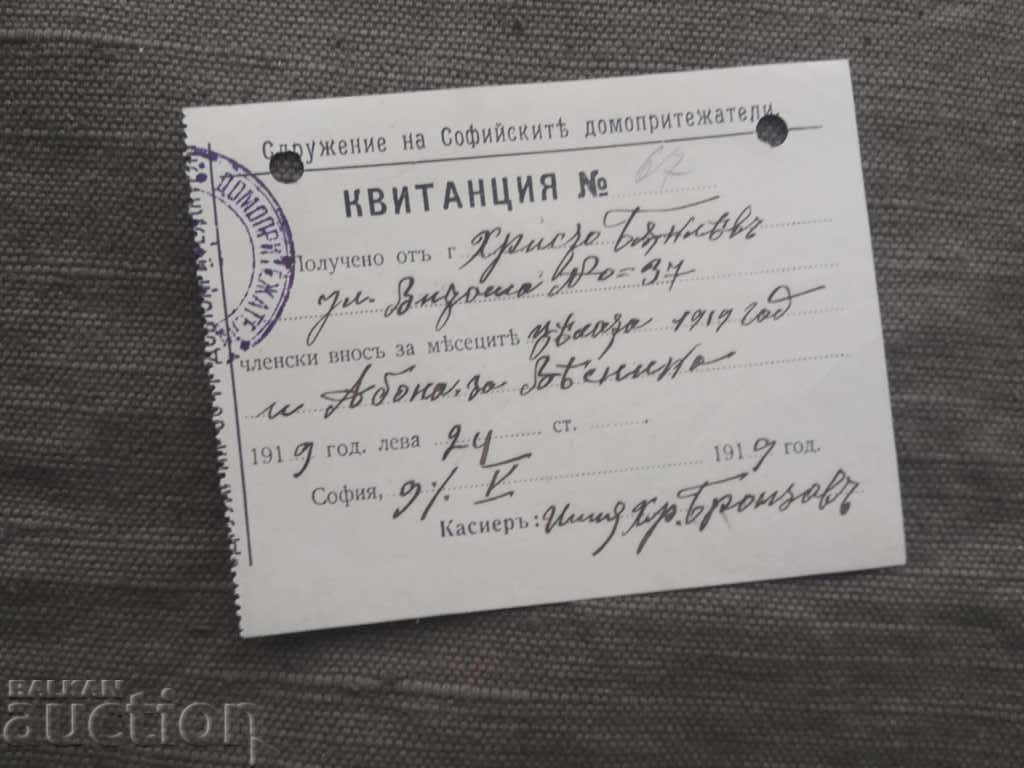 Сдружение на Софийскитѣ домопритежатели
КВИТАНЦИЯ № 67
Получено отъ г Христо
ул. Витоша No=37
членски вносъ за мѣсецитѣ цѣлата 1919 год
и Абона. за
1919 год. лева 24 ст.
София, 9/V 1919 год.
Касиеръ: Илия Хр. Бронзовъ
ДОМОПРИТЕЖАТЕЛ
BALKAN
auction